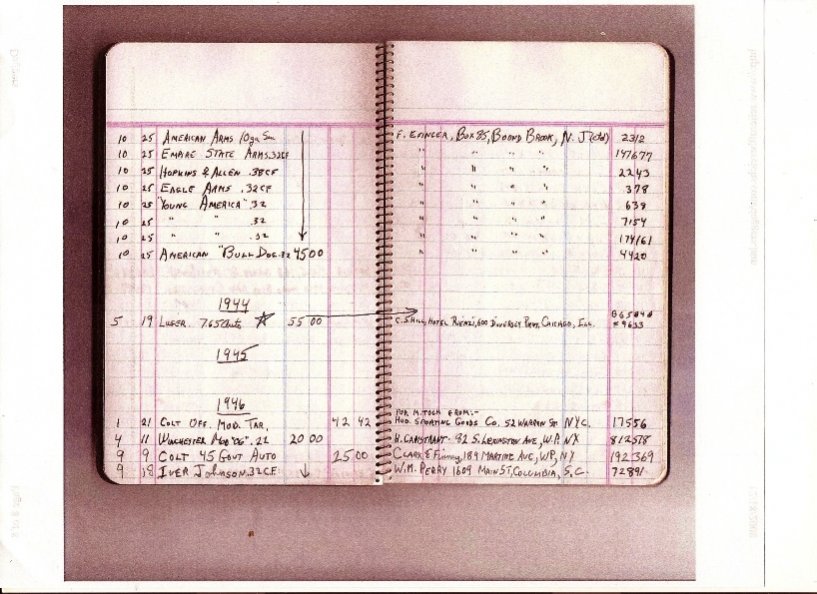 10 25 AMERICAN ARMS 10ga F. EFINGER, BOX 85, BOUND BROOK, N. J (ctd) 2312
10 25 EMPIRE STATE ARMS .32CF " " " " 147677
10 25 HOPKINS & ALLEN .38CF " " " " 2243
10 25 EAGLE ARMS .32CF " " " " 378
10 25 "YOUNG AMERICA" .32 " " " " 639
10 25 " " .32 " " " " 7154
10 25 " " .32 " " " " 174161
10 25 AMERICAN "BULL DOG .32 45 00 " " " " 4420
1944
5 19 LUGER 7.65 55 00 HOTEL 600 DIVERSEY CHICAGO, ILL.
# 9633
1945
1946
FOR M. TOCH FROM:-
1 21 COLT OFF. MOD. TAR. 42 42 HUD. SPORTING GOODS CO. 52 WARREN ST NYC. 17556
4 11 WINCHESTER MOD "06" .22 20 00 92 S. LEXINGTON AVE, W.P. NY
9 9 COLT 45 GOVT AUTO 25 00 CLARK 189 MARTINE AVE, WP, NY 192369
9 18 IVER JOHNSON .32CF W.M. PERRY 1609 MAIN ST, COLUMBIA, S.C. 72891